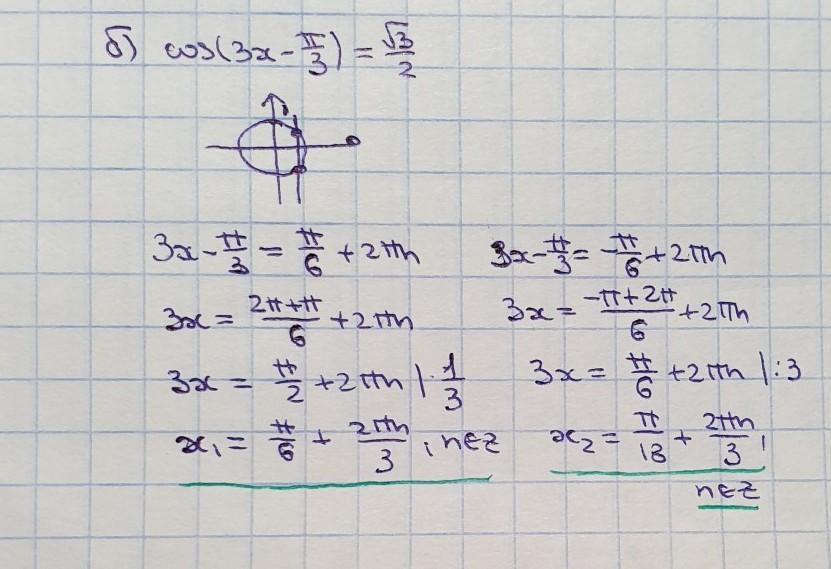 б) cos(3x - π/3) = √3/2
3x - π/3 = π/6 + 2πn
3x = (2π+π)/6 + 2πn
3x = π/2 + 2πn | · 1/3
x₁ = π/6 + 2πn/3, n∈Z
3x - π/3 = -π/6 + 2πn
3x = (-π+2π)/6 + 2πn
3x = π/6 + 2πn | :3
x₂ = π/18 + 2πn/3,
n∈Z